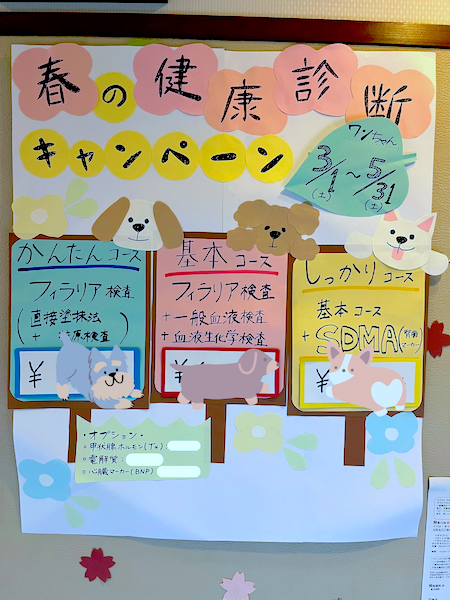 春の健康診断
キャンペーン
ワンちゃん
3/1(土)~5/31(土)
かんたんコース
フィラリア検査
(直接塗抹法
+ 原検査)
¥
基本コース
フィラリア検査
+一般血液検査
+血液生化学検査
¥
しっかりコース
基本コース
+SDMA(腎臓マーカー)
¥
・オプション・
○甲状腺ホルモン(T4):
○電解質:
○心臓マーカー(BNP)